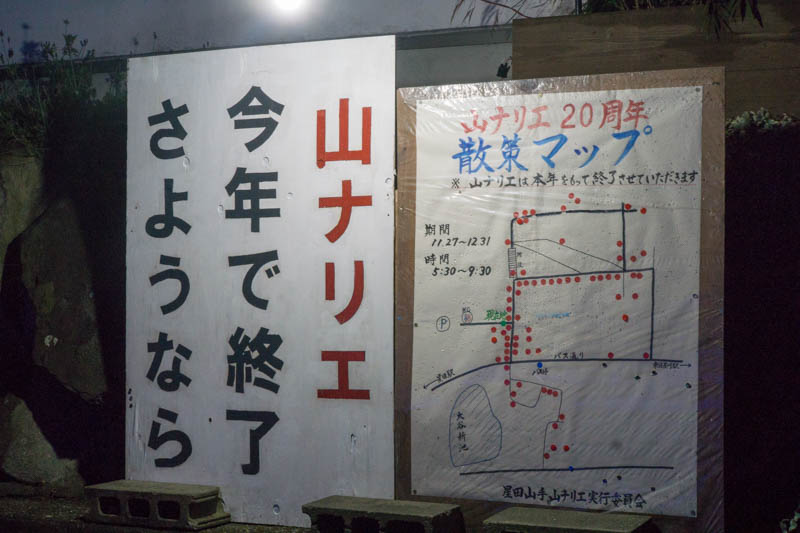 山ナリエ
今年で終了
さようなら
山ナリエ 20周年
散策マップ
※ 山ナリエは本年をもって終了させていただきます
期間
11.27～12.31
時間
5:30～9:30
P
現在地
バス通り
バス停
星田駅
大谷新池
星田山手山ナリエ実行委員会